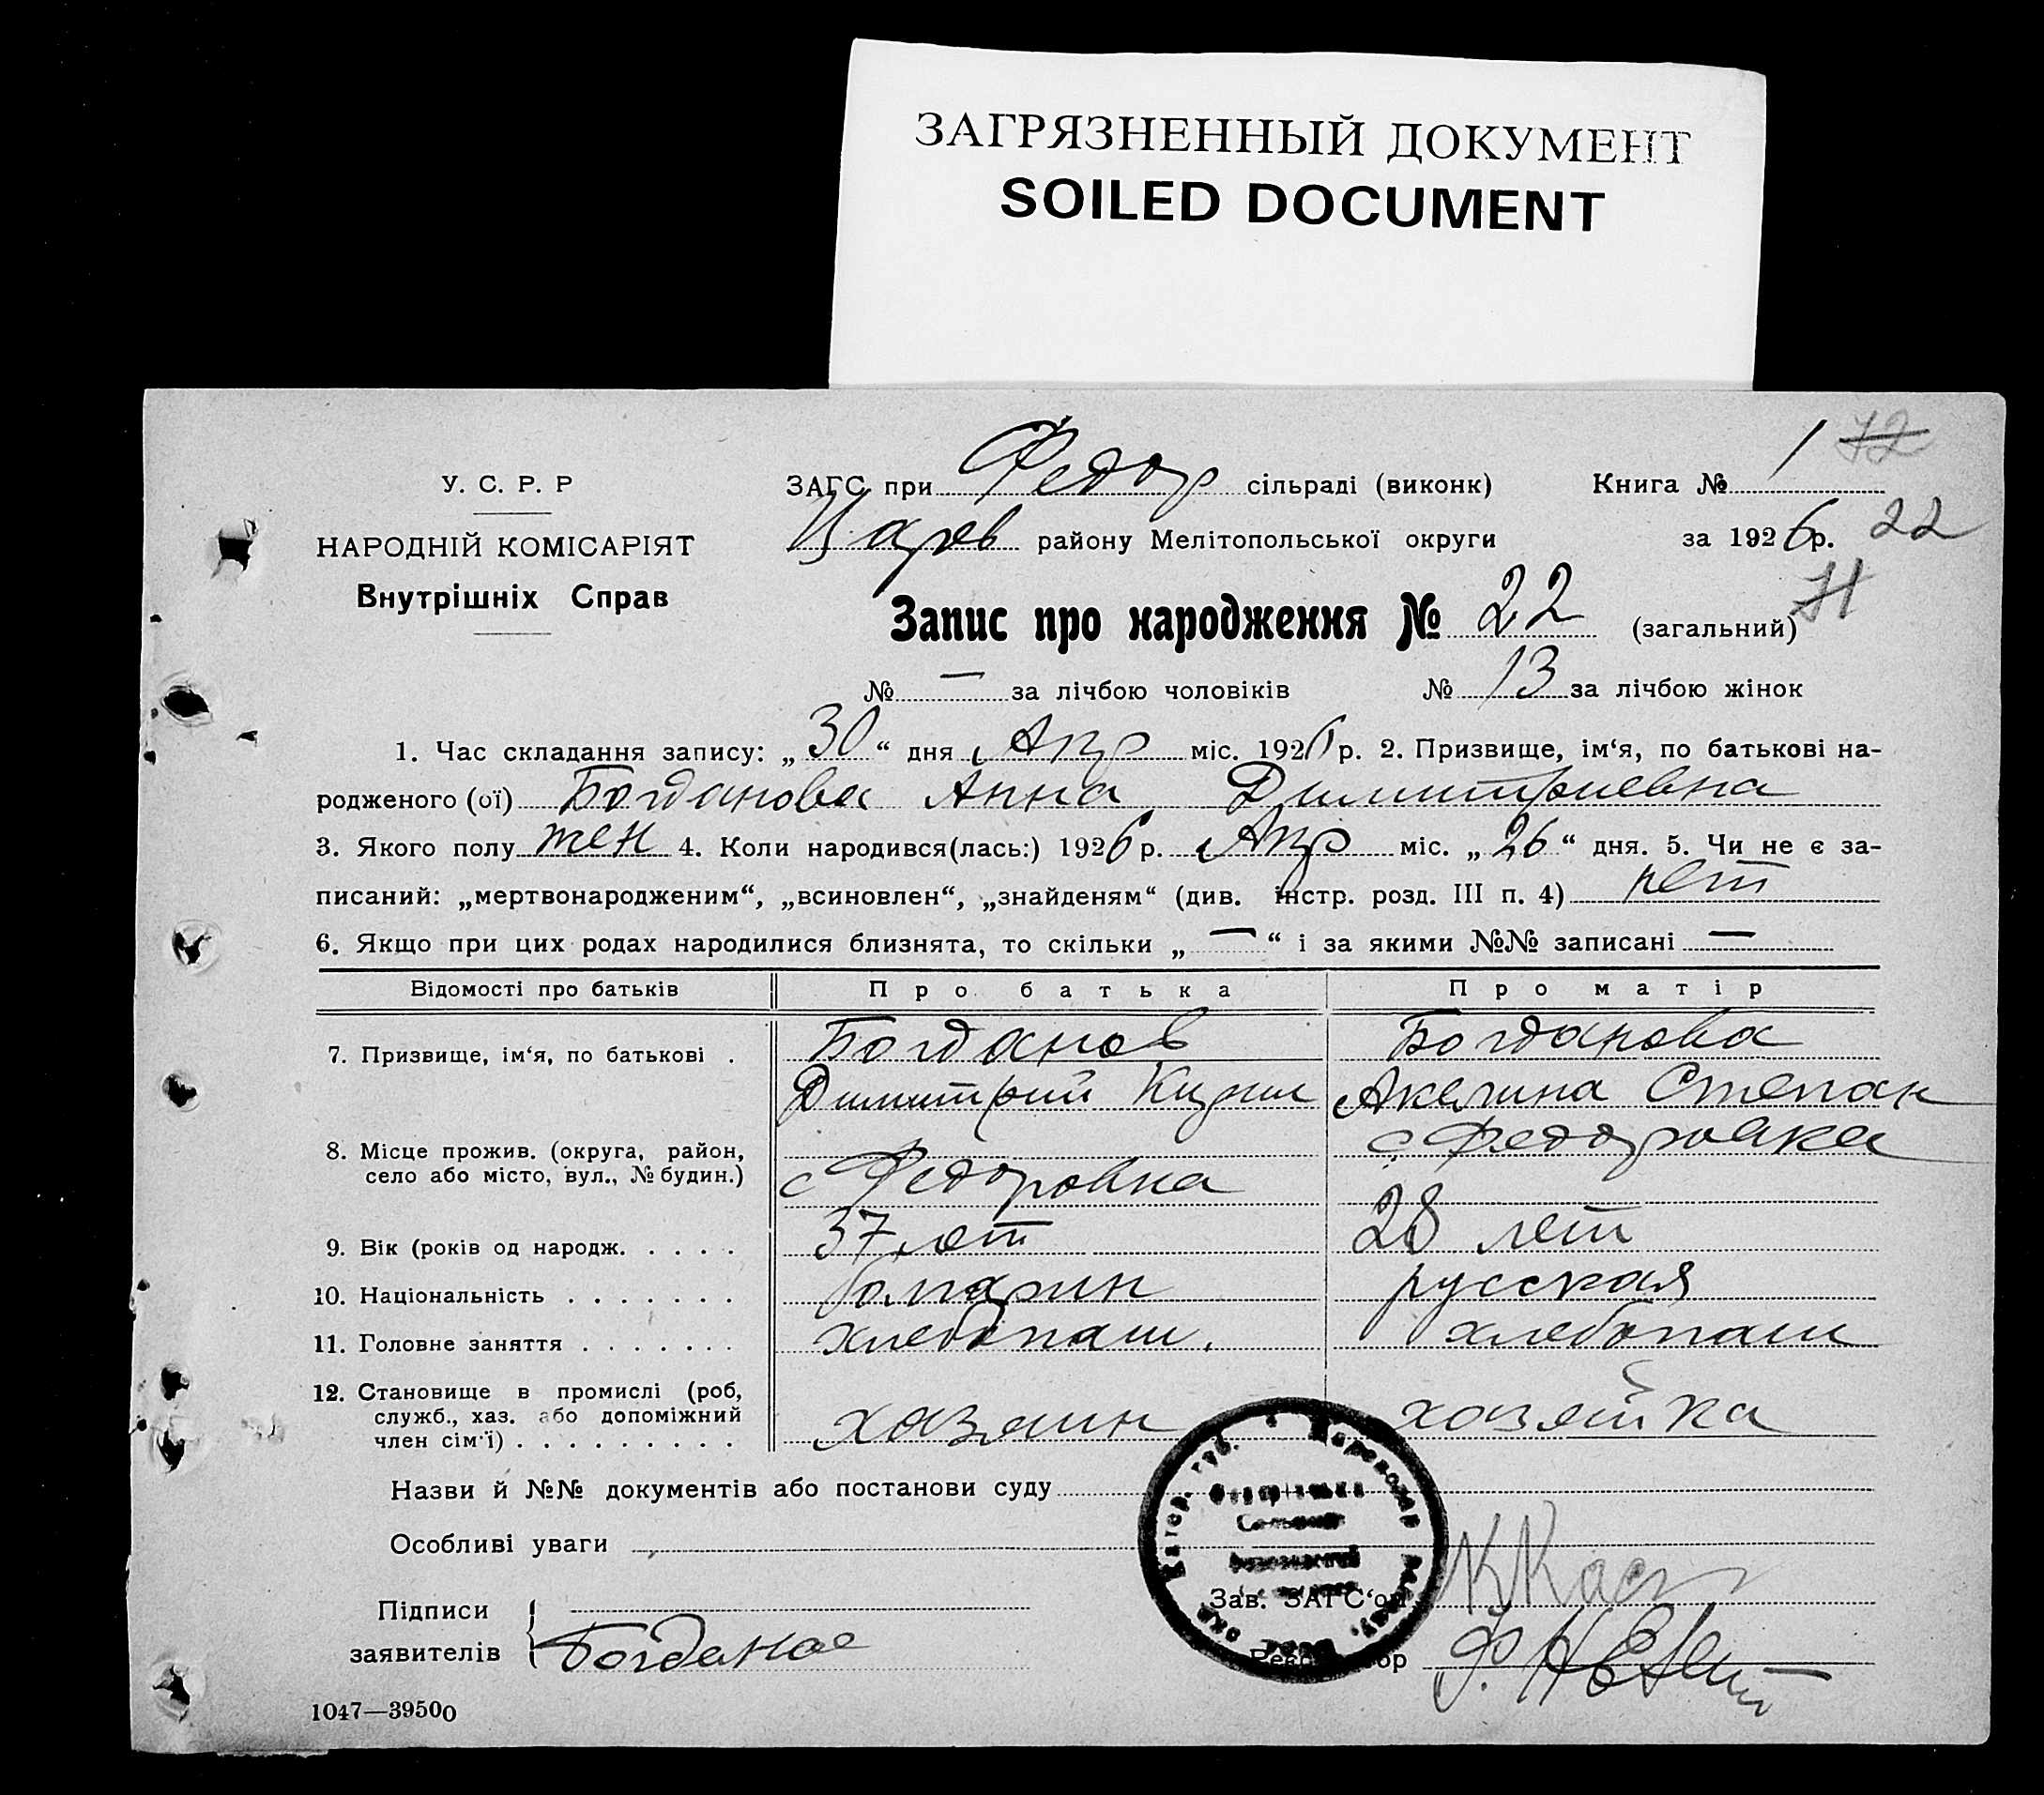 ЗАГРЯЗНЕННЫЙ ДОКУМЕНТ
SOILED DOCUMENT
У. С. Р. Р
НАРОДНІЙ КОМІСАРІЯТ
Внутрішніх Справ
ЗАГС при Федор сільраді (виконк) Книга № 1 72
Царев району Мелітопольської округи за 1926 р. 22
Запис про народження № 22 (загальний)
№ — за лічбою чоловіків № 13 за лічбою жінок
1. Час складання запису: „30“ дня Апр міс. 1926 р. 2. Призвище, ім‘я, по батькові на-
родженого (ої) Богданова Анна Димитриевна
3. Якого полу жен 4. Коли народився(лась:) 1926 р. Апр міс. „26“ дня. 5. Чи не є за-
писаний: „мертвонародженим“, „всиновлен“, „знайденям“ (див. інстр. розд. III п. 4) нет
6. Якщо при цих родах народилися близнята, то скільки „—“ і за якими №№ записані —
Відомості про батьків Про батька Про матір
7. Призвище, ім‘я, по батькові . Богданов Богданова
Димитрий Кирил Акелина Степан
8. Місце прожив. (округа, район,
село або місто, вул., № будин.) с Федоровка с Федоровка
9. Вік (років од народж. . . . . 37 лет 28 лет
10. Національність . . . . . . . болгарин русская
11. Головне заняття . . . . . . . хлебопаш. хлебопаш
12. Становище в промислі (роб,
служб., хаз. або допоміжний
член сім‘ї) . . . . . . . . . хозяин хозяйка
Назви й №№ документів або постанови суду
Особливі уваги
Підписи
заявителів Богданов
Зав. ЗАГС‘ом
1047—39500